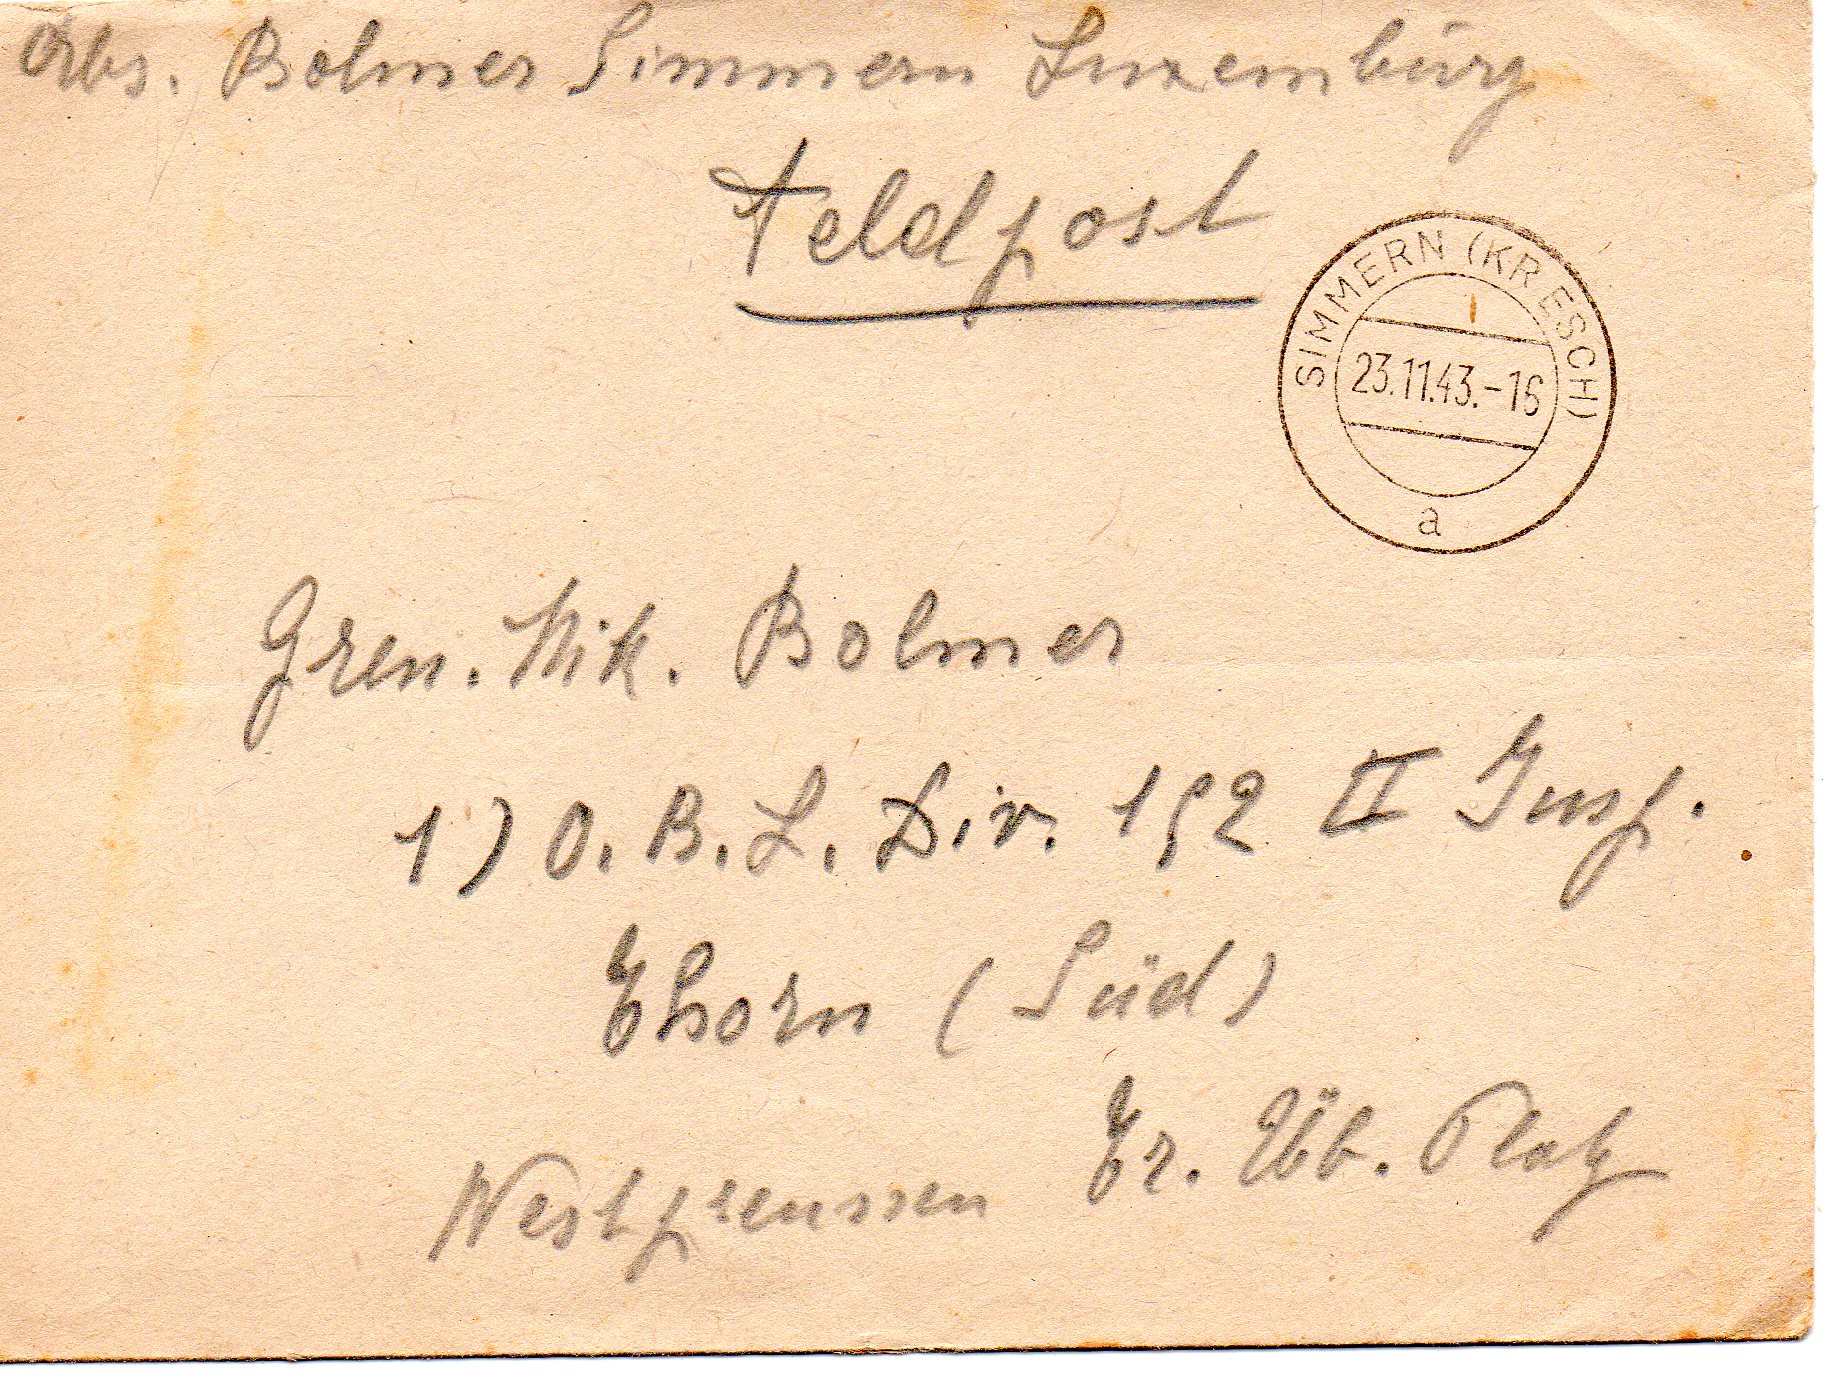 Abs. Bolmer Simmern Luxemburg
Feldpost
SIMMERN (KR ESCH)
23.11.43.-16
a
Gren. Nik. Bolmer
1) O. B. L. Div. 152 II Insp.
Thorn (Süd)
Tr. Üb. Platz
Westpreussen